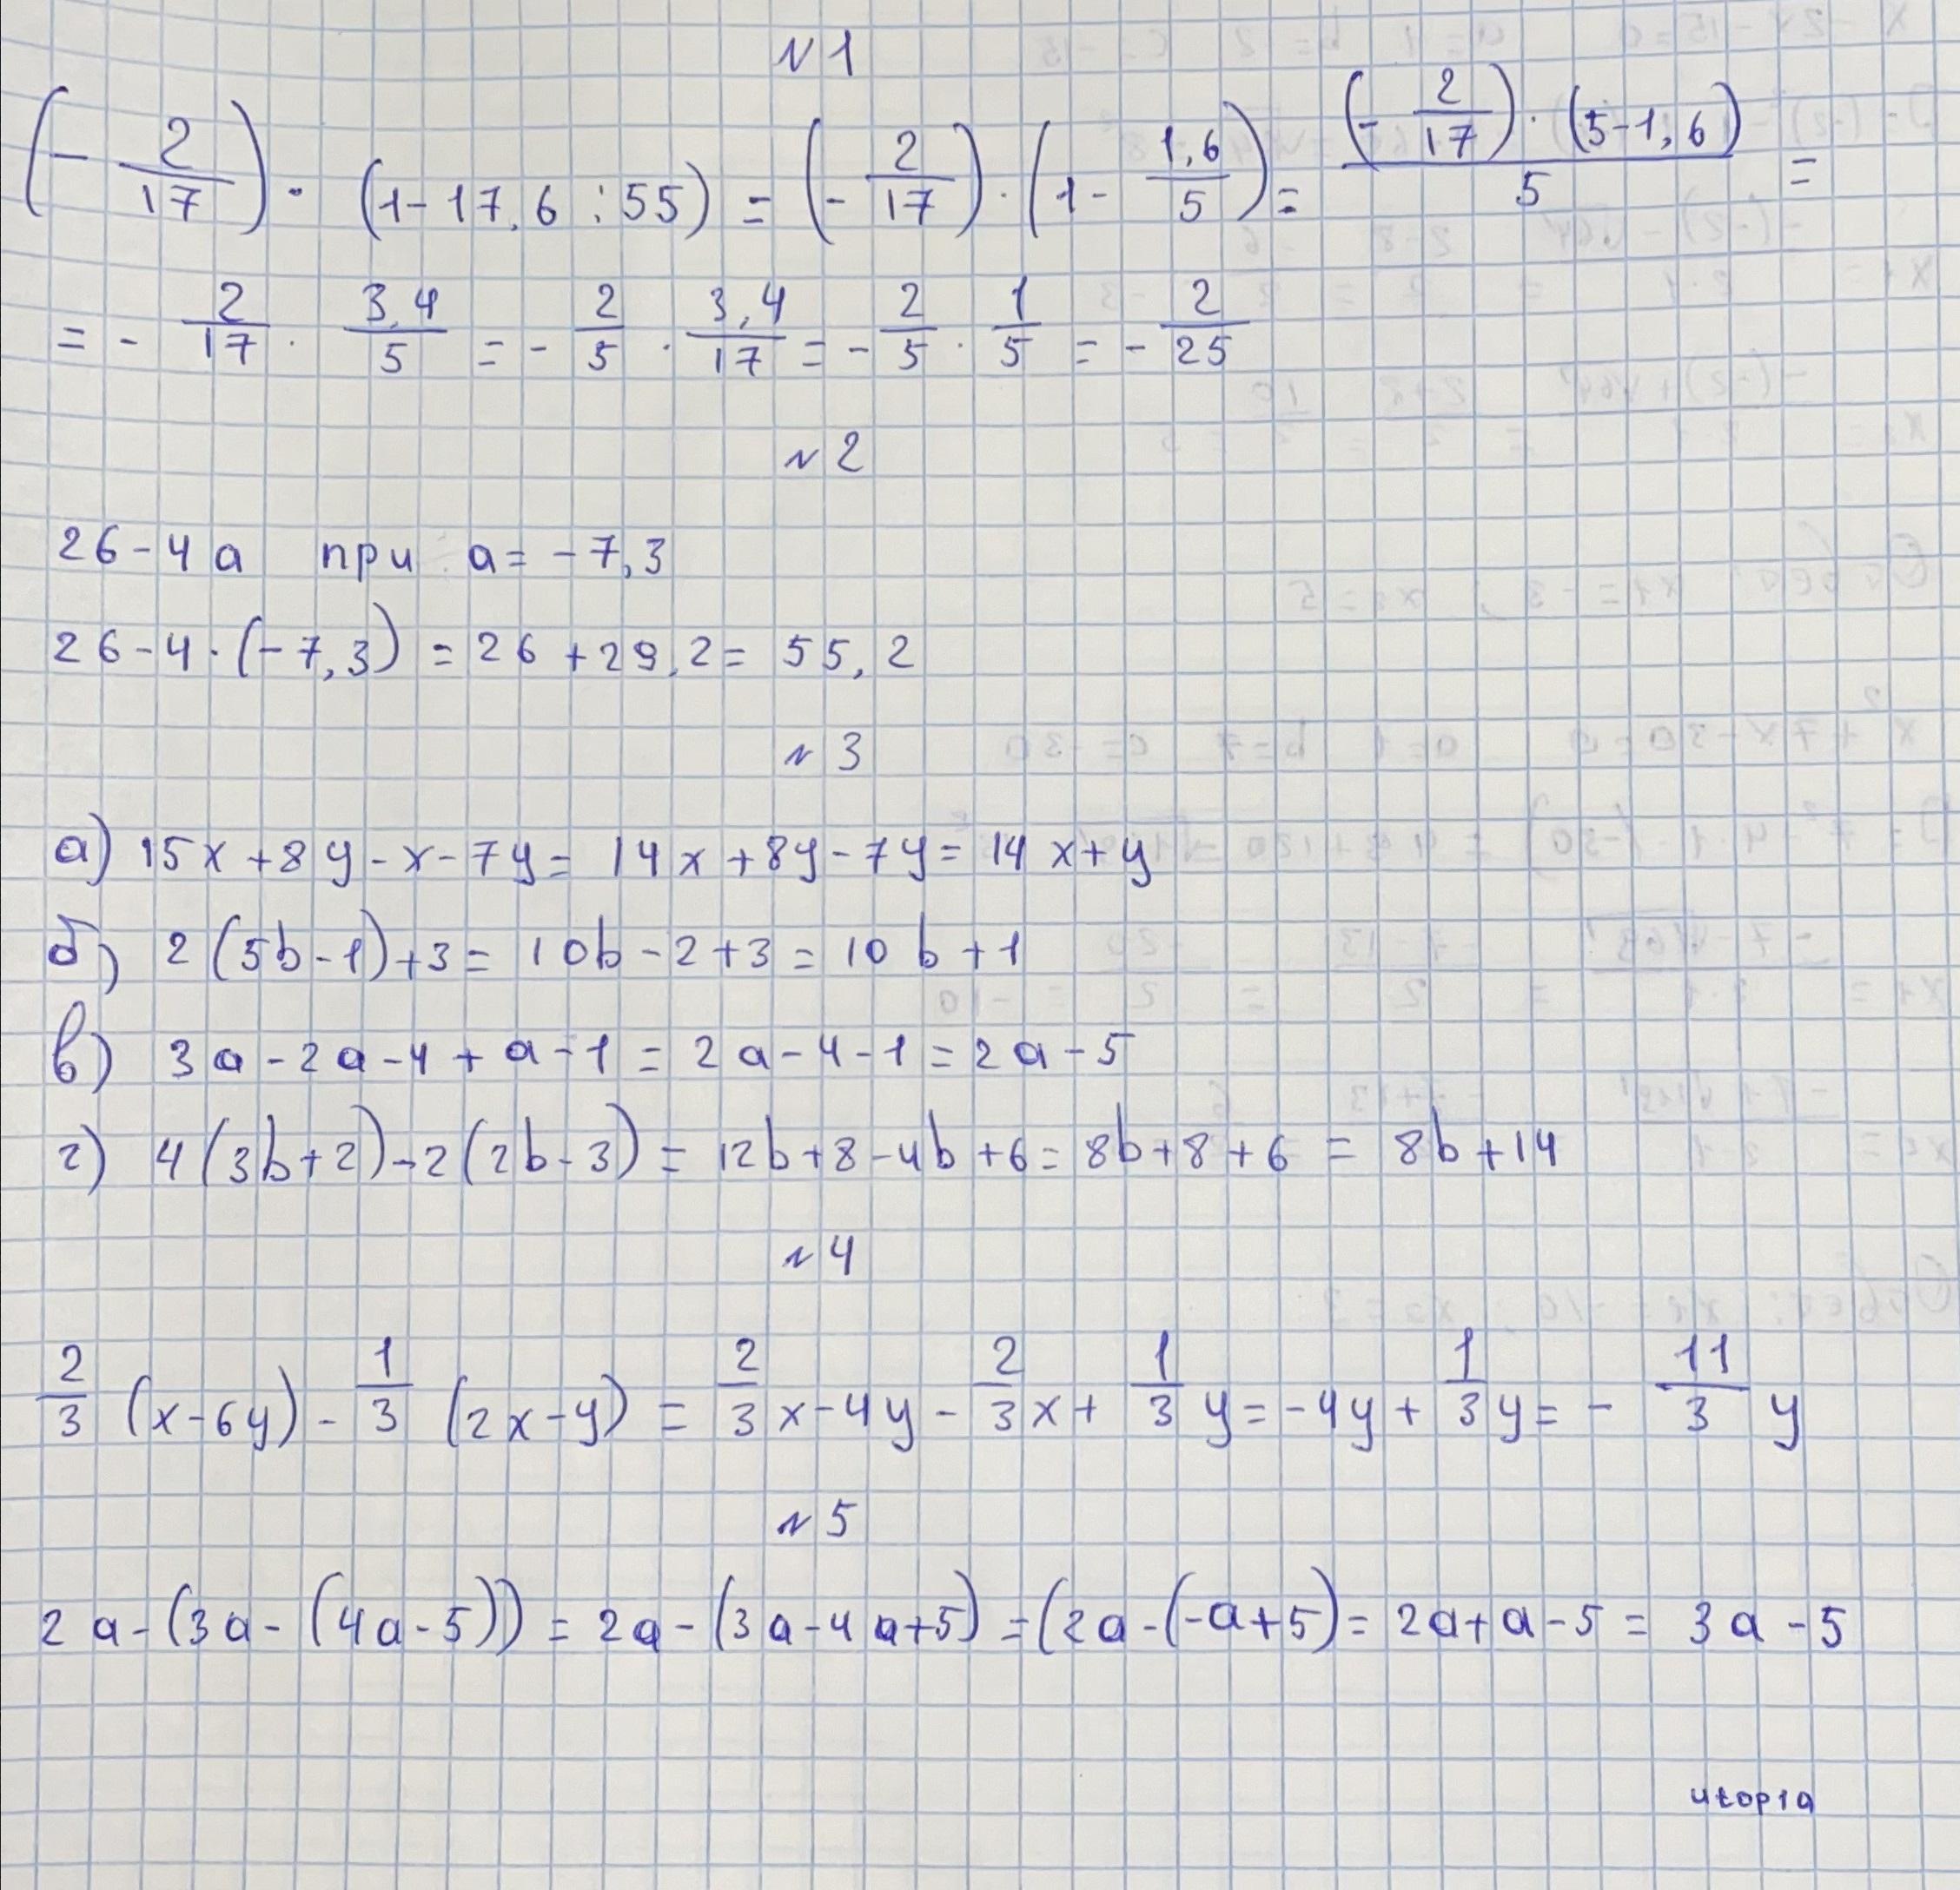 №1
(-2/17) · (1-17,6:55) = (-2/17) · (1 - 1,6/5) = (-2/17) · (5-1,6)/5 =
= - 2/17 · 3,4/5 = - 2/5 · 3,4/17 = - 2/5 · 1/5 = - 2/25
№2
26-4a при a=-7,3
26-4·(-7,3) = 26+29,2 = 55,2
№3
а) 15x+8y-x-7y = 14x+8y-7y = 14x+y
б) 2(5b-1)+3 = 10b-2+3 = 10b+1
в) 3a-2a-4+a-1 = 2a-4-1 = 2a-5
г) 4(3b+2)-2(2b-3) = 12b+8-4b+6 = 8b+8+6 = 8b+14
№4
2/3 (x-6y) - 1/3 (2x-y) = 2/3 x-4y - 2/3 x + 1/3 y = -4y + 1/3 y = - 11/3 y
№5
2a-(3a-(4a-5)) = 2a-(3a-4a+5) = (2a-(-a+5) = 2a+a-5 = 3a-5
utop1a